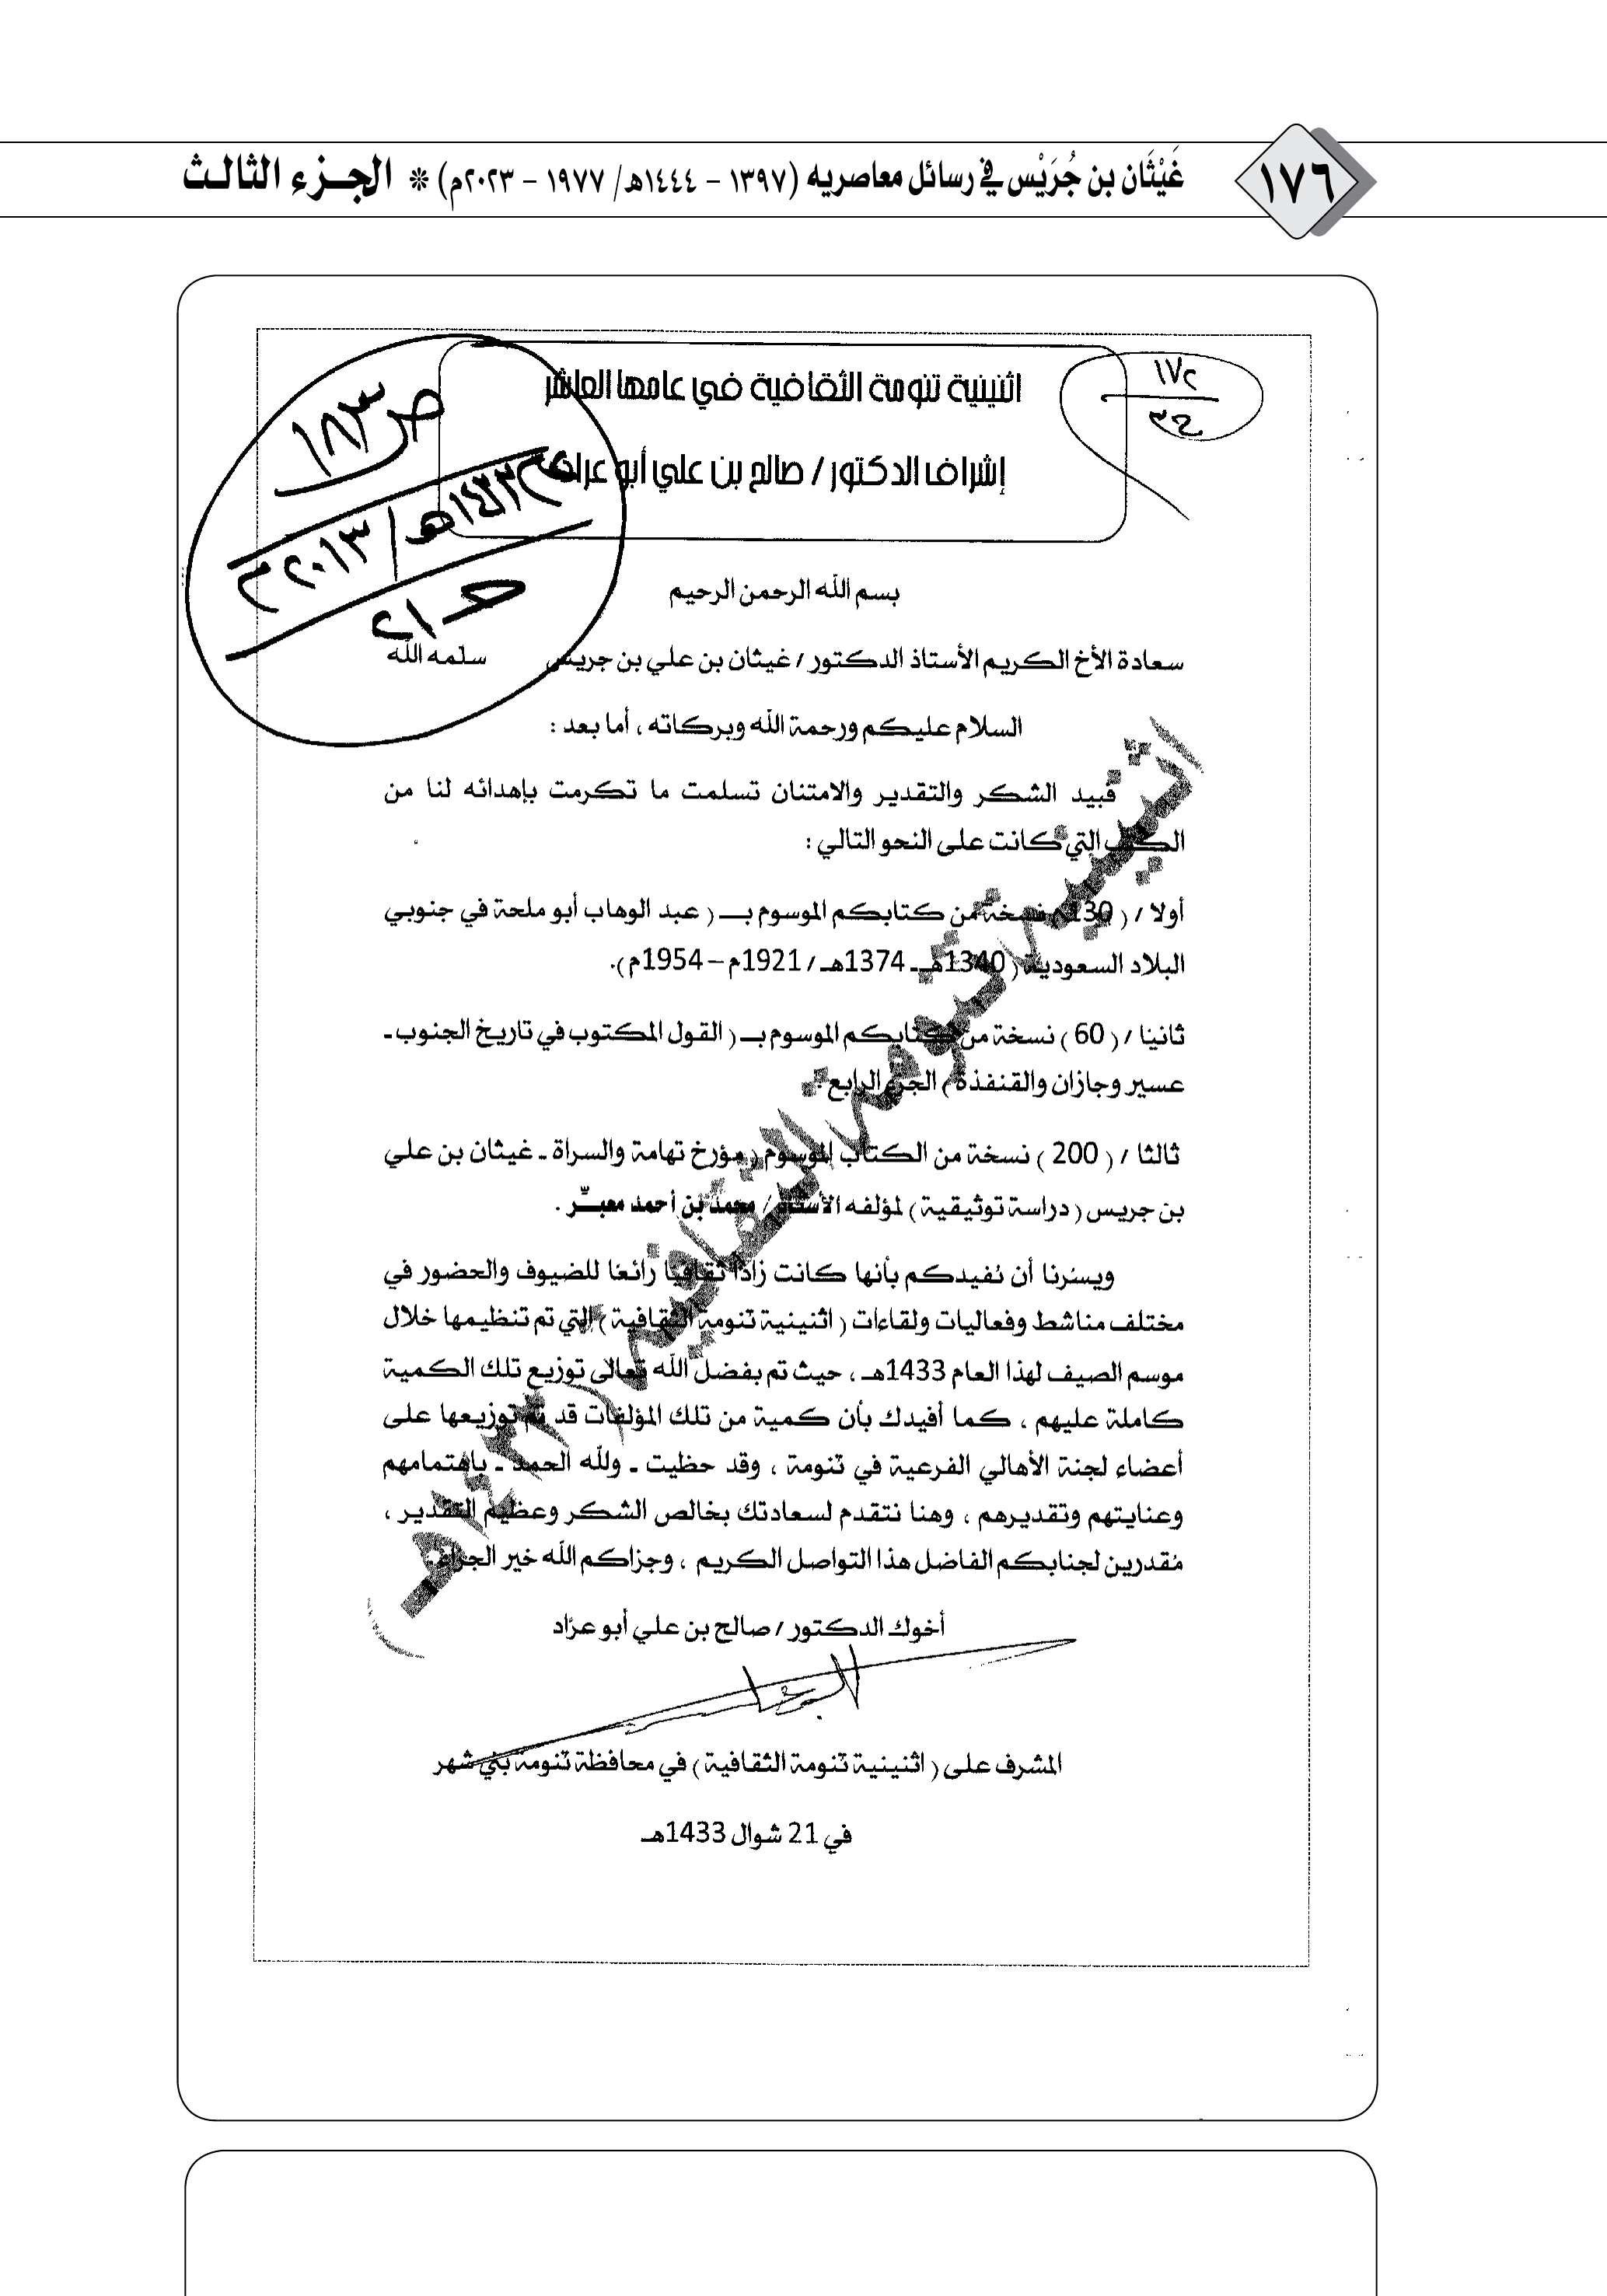 ١٧٦
غَيْثَان بن جُرَيْس في رسائل معاصريه (١٣٩٧ - ١٤٤٤هـ/ ١٩٧٧ - ٢٠٢٣م) * الجــزء الثالـث
اثنينية تنومة الثقافية في عامها العاشر
إشراف الدكتور / صالح بن علي أبو عراد
١٧٢
ص ١٨٣
١٤٣٣هـ / ٢٠١٣م
حـ ٢١
بسم الله الرحمن الرحيم
سعادة الأخ الكريم الأستاذ الدكتور / غيثان بن علي بن جريس سلمه الله
السلام عليكم ورحمة الله وبركاته ، أما بعد :
فبيد الشكر والتقدير والامتنان تسلمت ما تكرمت بإهدائه لنا من
الكتب التي كانت على النحو التالي :
أولا / ( 130 ) نسخة من كتابكم الموسوم بـــ ( عبد الوهاب أبو ملحة في جنوبي
البلاد السعودية ( 1340هـ ـ 1374هـ / 1921م – 1954م ).
ثانيا / ( 60 ) نسخة من كتابكم الموسوم بــ ( القول المكتوب في تاريخ الجنوب ـ
عسير وجازان والقنفذة ) الجزء الرابع .
ثالثا / ( 200 ) نسخة من الكتاب الموسوم ( مؤرخ تهامة والسراة ـ غيثان بن علي
بن جريس ( دراسة توثيقية ) لمؤلفه الأستاذ / محمد بن أحمد معبـّـر .
ويسرنا أن نفيدكم بأنها كانت زادا ثقافيا رائعا للضيوف والحضور في
مختلف مناشط وفعاليات ولقاءات ( اثنينية تنومة الثقافية ) التي تم تنظيمها خلال
موسم الصيف لهذا العام 1433هـ ، حيث تم بفضل الله تعالى توزيع تلك الكمية
كاملة عليهم ، كما أفيدك بأن كمية من تلك المؤلفات قد تم توزيعها على
أعضاء لجنة الأهالي الفرعية في تنومة ، وقد حظيت ـ ولله الحمد ـ باهتمامهم
وعنايتهم وتقديرهم ، وهنا نتقدم لسعادتك بخالص الشكر وعظيم التقدير ،
مقدرين لجنابكم الفاضل هذا التواصل الكريم ، وجزاكم الله خير الجزاء .
اثنينية تنومة الثقافية ( ١٤٣٣هـ )
أخوك الدكتور / صالح بن علي أبو عرّاد
المشرف على ( اثنينية تنومة الثقافية ) في محافظة تنومة بني شهر
في 21 شوال 1433هـ